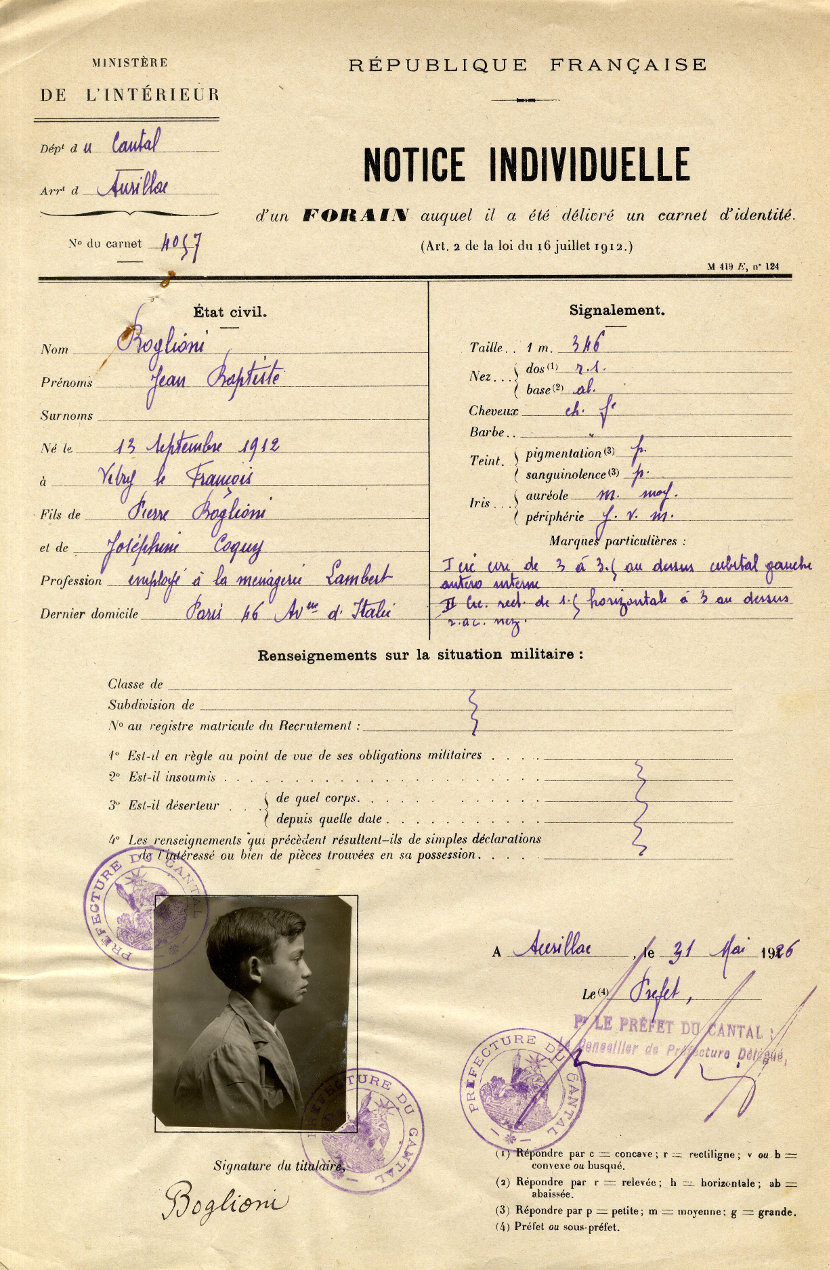 MINISTÈRE
DE L'INTÉRIEUR
Dépt d u Cantal
Arrt d Aurillac
No du carnet 4057
RÉPUBLIQUE FRANÇAISE
NOTICE INDIVIDUELLE
d'un FORAIN auquel il a été délivré un carnet d'identité.
(Art. 2 de la loi du 16 juillet 1912.)
M 419 E, n° 124
État civil.
Nom Boglioni
Prénoms Jean Baptiste
Surnoms
Né le 13 Septembre 1912
à Vitry le François
Fils de Pierre Boglioni
et de Joséphine Coquy
Profession employé à la ménagerie Lambert
Dernier domicile Paris 46 Avnue d'Italie
Signalement.
Taille.. 1 m. 346
Nez... dos(1) r.s.
base(2) ab.
Cheveux ch. fé
Barbe.. "
Teint. pigmentation(3) p.
sanguinolence(3) p.
Iris... auréole m. moy.
périphérie j. v. m.
Marques particulières :
I cic cve de 3 à 3. au dessus cubital gauche
antero interne
II Cic. rect. de 1. horizontale à 3 au dessus
r. ac. nez.
Renseignements sur la situation militaire :
Classe de
Subdivision de
No au registre matricule du Recrutement :
1° Est-il en règle au point de vue de ses obligations militaires . . . .
2° Est-il insoumis . . . . . . . . . . . . . . . . . . . .
3° Est-il déserteur . . . de quel corps. . . . . . . . . . . .
depuis quelle date . . . . . . . . . .
4° Les renseignements qui précèdent résultent-ils de simples déclarations
de l'intéressé ou bien de pièces trouvées en sa possession. . . . .
PREFECTURE DU CANTAL
A Aurillac, le 31 Mai 1926
Le(4) Prefet,
Pr LE PRÉFET DU CANTAL :
Le Conseiller de Préfecture Délégué,
PREFECTURE DU CANTAL
PREFECTURE DU CANTAL
Signature du titulaire,
Boglioni
(1) Répondre par c = concave ; r = rectiligne ; v ou b =
convexe ou busqué.
(2) Répondre par r = relevée ; h = horizontale ; ab =
abaissée.
(3) Répondre par p = petite ; m = moyenne ; g = grande.
(4) Préfet ou sous-préfet.